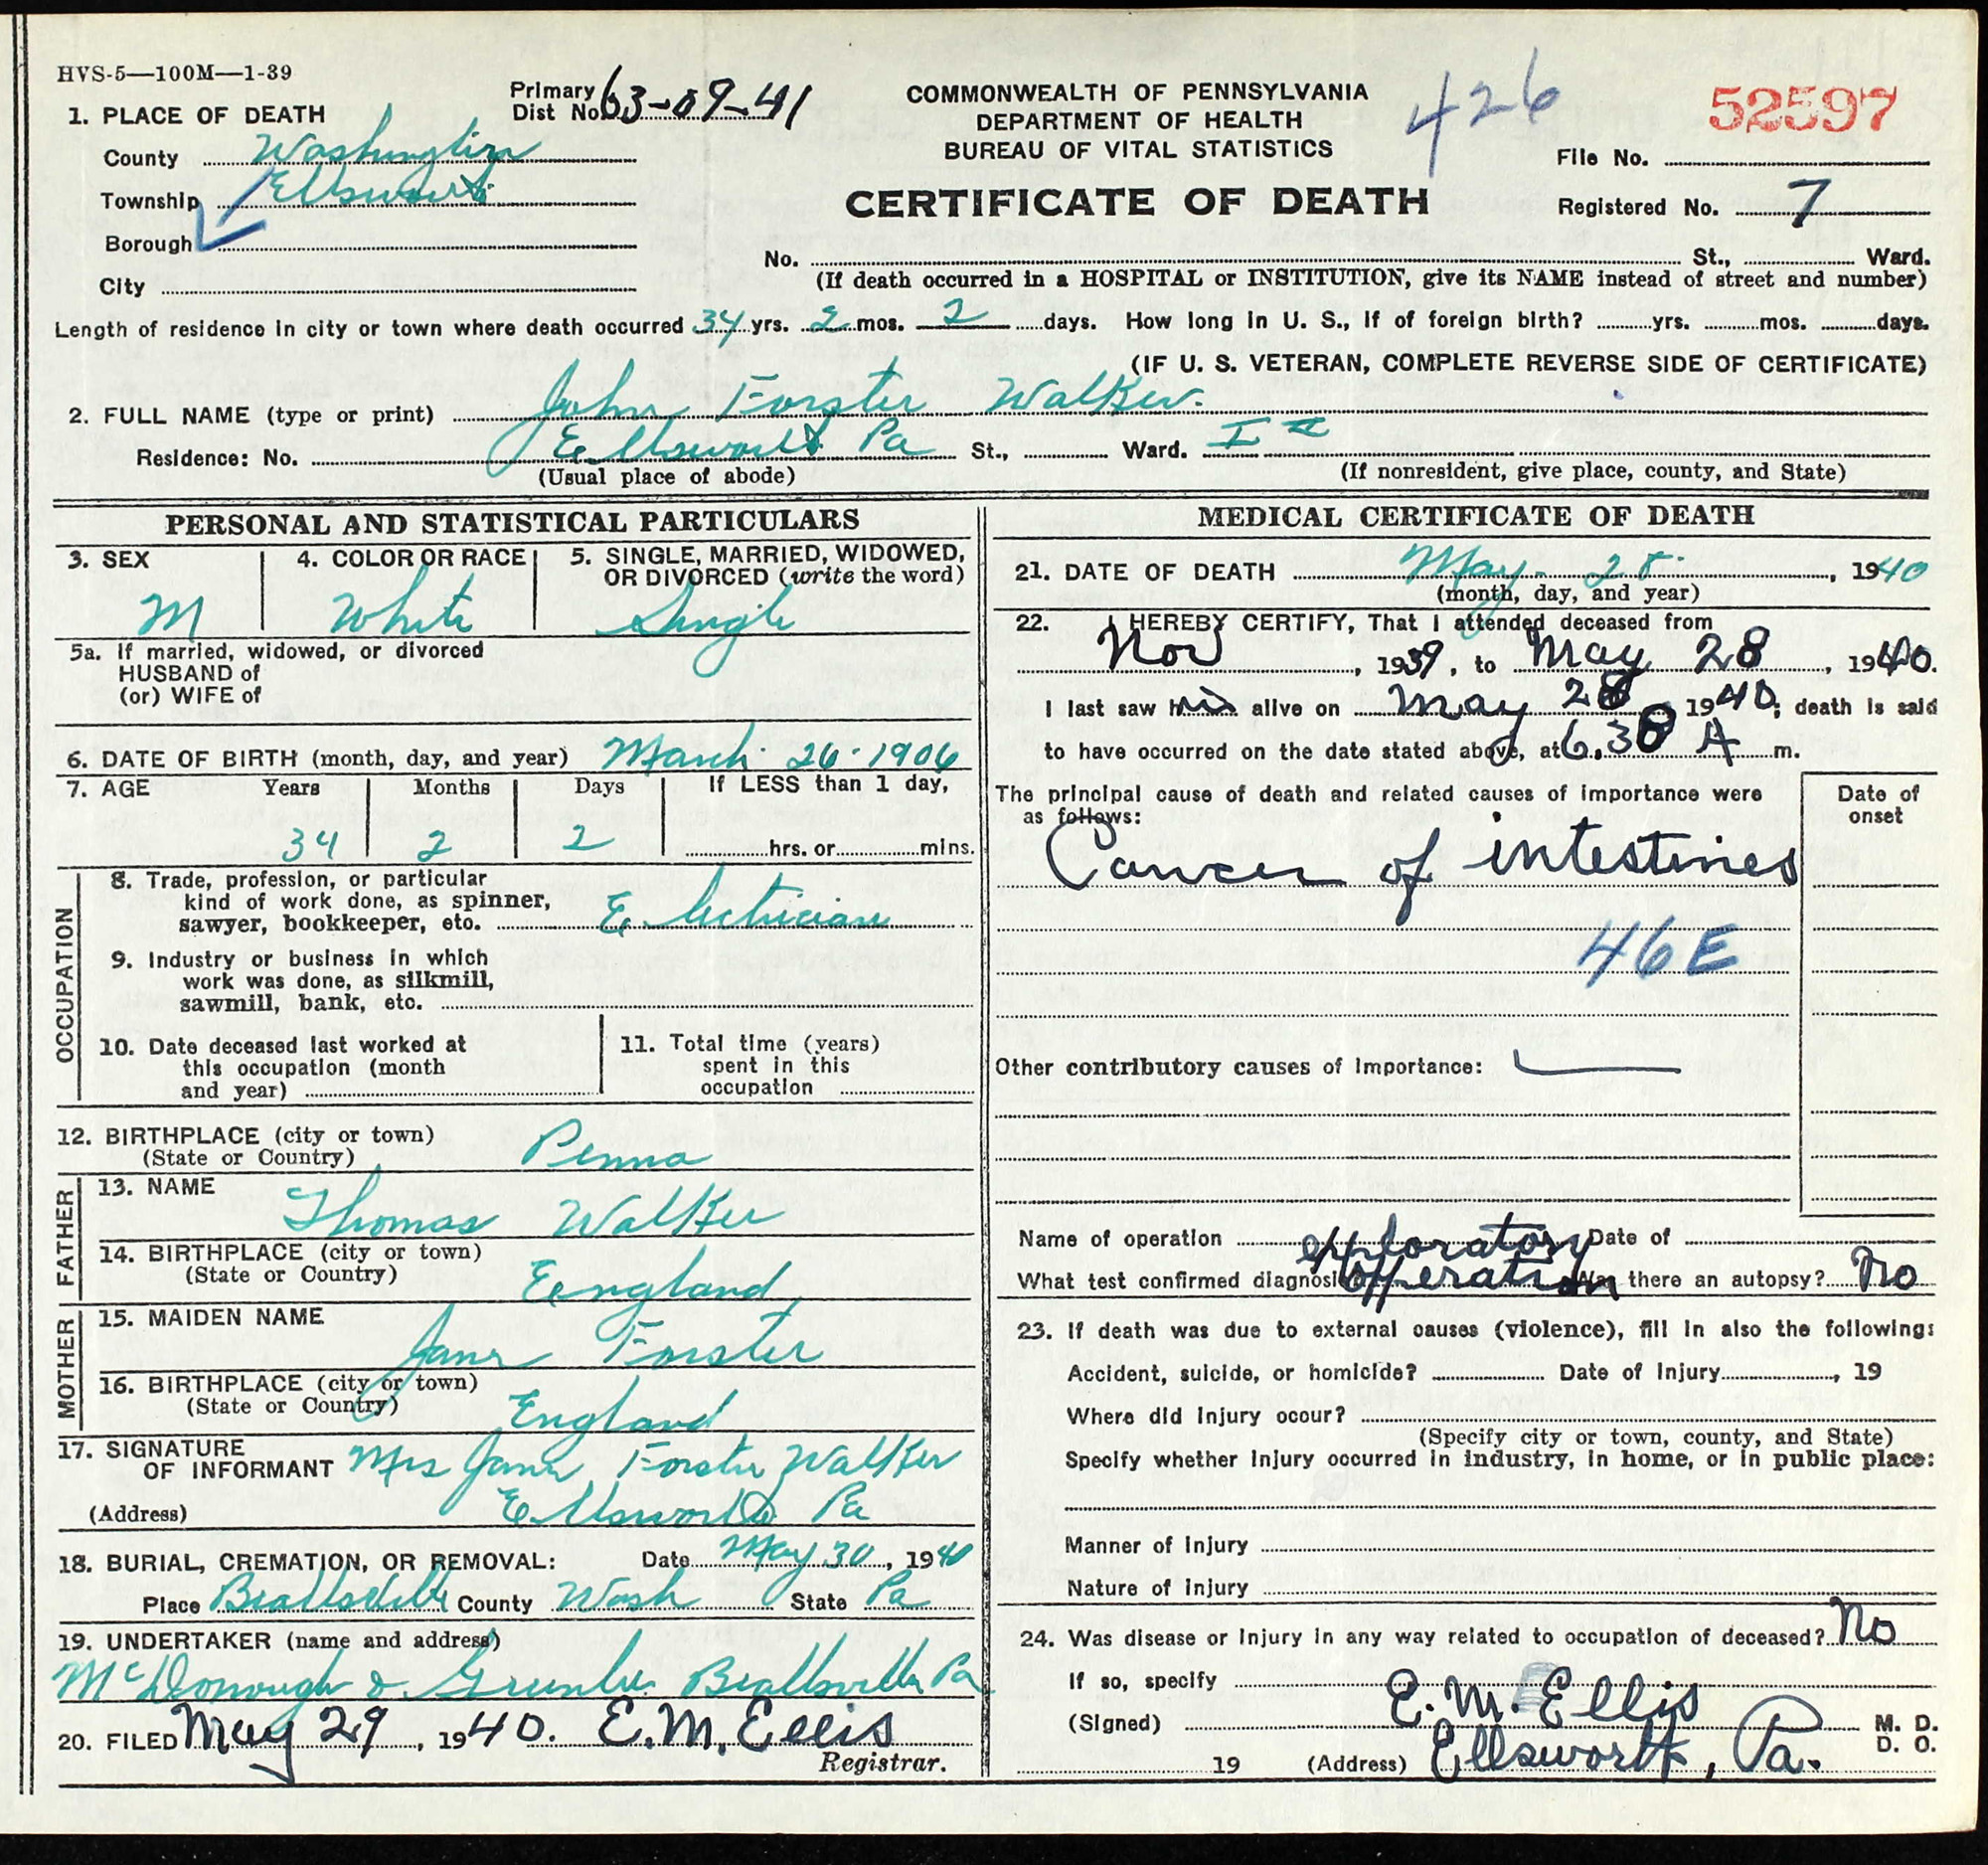 HVS-5—100M—1-39
Primary Dist No. 63-09-41
COMMONWEALTH OF PENNSYLVANIA
DEPARTMENT OF HEALTH
BUREAU OF VITAL STATISTICS
426
52597
File No.
CERTIFICATE OF DEATH
Registered No. 7
1. PLACE OF DEATH
County Washington
Township Ellsworth
Borough
City
No. St., Ward.
(If death occurred in a HOSPITAL or INSTITUTION, give its NAME instead of street and number)
Length of residence in city or town where death occurred 34 yrs. 2 mos. 2 days. How long in U. S., if of foreign birth? yrs. mos. days.
(IF U. S. VETERAN, COMPLETE REVERSE SIDE OF CERTIFICATE)
2. FULL NAME (type or print) John Forster Walker.
Residence: No. Ellsworth Pa St., Ward.
(Usual place of abode) (If nonresident, give place, county, and State)
PERSONAL AND STATISTICAL PARTICULARS
3. SEX
M
4. COLOR OR RACE
White
5. SINGLE, MARRIED, WIDOWED,
OR DIVORCED (write the word)
Single
5a. If married, widowed, or divorced
HUSBAND of
(or) WIFE of
6. DATE OF BIRTH (month, day, and year) March 26-1906
7. AGE Years Months Days If LESS than 1 day,
34 2 2 hrs. or mins.
OCCUPATION
8. Trade, profession, or particular
kind of work done, as spinner,
sawyer, bookkeeper, etc. Electrician
9. Industry or business in which
work was done, as silkmill,
sawmill, bank, etc.
10. Date deceased last worked at
this occupation (month
and year)
11. Total time (years)
spent in this
occupation
12. BIRTHPLACE (city or town)
(State or Country) Penna
FATHER
13. NAME Thomas Walker
14. BIRTHPLACE (city or town)
(State or Country) England
MOTHER
15. MAIDEN NAME
Jane Forster
16. BIRTHPLACE (city or town)
(State or Country) England
17. SIGNATURE
OF INFORMANT Mrs Jane Forster Walker
(Address) Ellsworth Pa
18. BURIAL, CREMATION, OR REMOVAL: Date May 30, 1940
Place Beallsville County Wash State Pa
19. UNDERTAKER (name and address)
McDonough & Beallsville Pa
20. FILED May 29, 1940. E.M. Ellis
Registrar.
MEDICAL CERTIFICATE OF DEATH
21. DATE OF DEATH May 28, 1940
(month, day, and year)
22. I HEREBY CERTIFY, That I attended deceased from
Nov, 1939, to May 28, 1940.
I last saw him alive on May 28 1940; death is said
to have occurred on the date stated above, at 6.30 A m.
The principal cause of death and related causes of importance were
as follows:
Date of
onset
Cancer of intestines
46E
Other contributory causes of importance:
Name of operation exploratory Date of
What test confirmed diagnosis? operation Was there an autopsy? No
23. If death was due to external causes (violence), fill in also the following:
Accident, suicide, or homicide? Date of injury, 19
Where did injury occur?
(Specify city or town, county, and State)
Specify whether injury occurred in industry, in home, or in public place:
Manner of injury
Nature of injury
24. Was disease or injury in any way related to occupation of deceased? No
If so, specify
(Signed) E. M. Ellis M. D.
D. O.
19 (Address) Ellsworth, Pa.